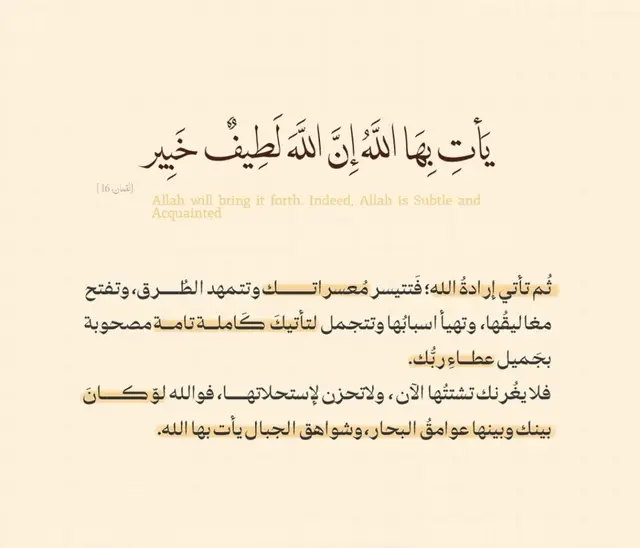 يَأْتِ بِهَا اللَّهُ إِنَّ اللَّهَ لَطِيفٌ خَبِير
[لقمان: 16]
Allah will bring it forth. Indeed, Allah is Subtle and
Acquainted
ثُم تأتي إرادةُ الله؛ فَتتيسر مُعسراتـــــك وتتمهد الطُـــرق، وتفتح
مغاليقُها، وتهيأ اسبابُها وتتجمل لتأتيكَ كَاملــة تامــة مصحوبة
بجَميل عطاءِ ربُّك.
فلا يغُرنك تشتتُها الآن ، ولاتحزن لإستحلاتهـــا، فوالله لوَ كـــــانَ
بينك وبينها عوامقُ البحار، وشواهق الجبال يأت بها الله.